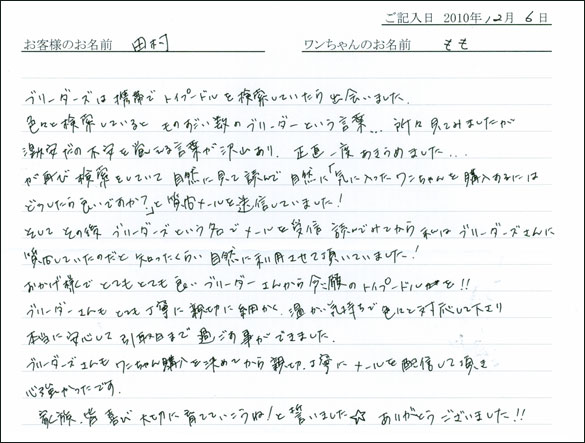 ご記入日 2010年12月6日
お客様のお名前 田村 ワンちゃんのお名前 もも
ブリーダーズは携帯でトイプードルを検索していたら出会いました。
色々と検索していると ものすごい数のブリーダーという言葉... 所々見てみましたが
激安だの不安を覚える言葉が沢山あり、正直一度あきらめました...
が再び検索をしていて自然に見て読んで自然に「気に入ったワンちゃんを購入するには
どうしたら良いですか?」と質問メールを送信していました!
そしてその後ブリーダーズという名でメールを受信 読んでみてから私はブリーダーズさんに
質問していたのだと知ったくらい自然に利用させて頂いていました!
おかげ様でとてもとても良いブリーダーさんから念願のトイプードルを!!
ブリーダーさんもとても丁寧に親切に細かく、温かい気持ちで色々と対応して下さり
本当に安心して引取日まで過ごす事ができました。
ブリーダーズさんもワンちゃん購入を決めてから親切、丁寧にメールを配信して頂き
心強かったです。
家族、皆喜び 大切に育てていこうね!と誓いました☆ ありがとうございました!!